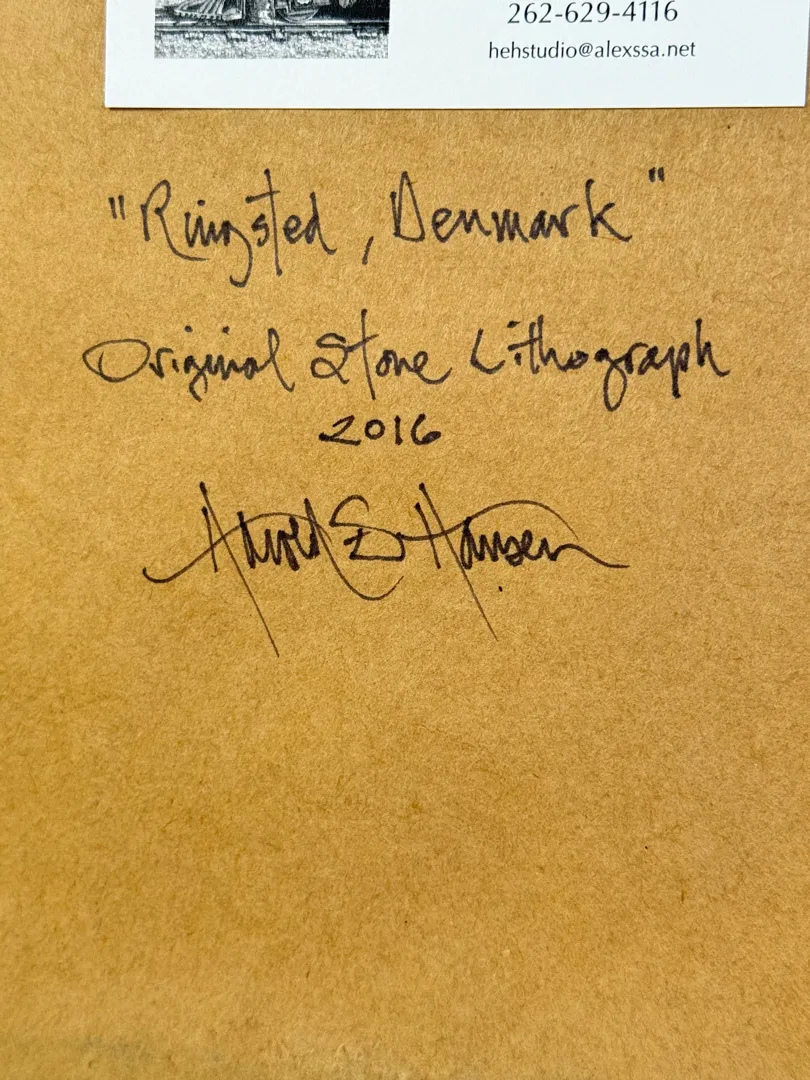 262-629-4116
hehstudio@alexssa.net
"Ringsted, Denmark"
Original Stone Lithograph
2016
Harold E Hansen